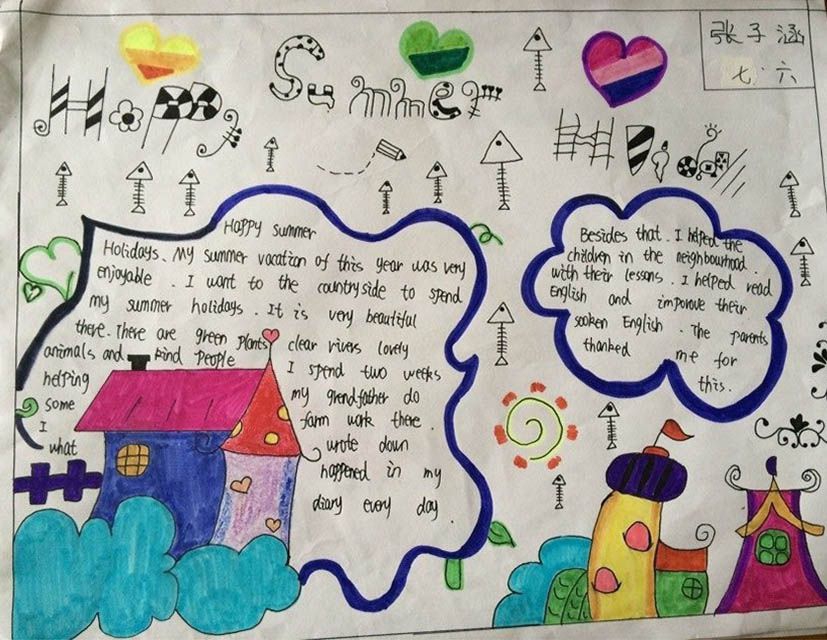 Happy
Summer
张子涵
七.六
HAPPY Summer
Holidays. My summer vacation of this year was very
enjoyable . I want to the countryside to spend
my summer holidays . It is very beautiful
there. There are green plants clear rivers lovely
animals and kind people I spend two weeks
helping my grendfather do
some farm work there .
I wrote down
what happened in my
diary every day .
Besides that . I helped the
children in the neighbourhood .
with their lessons . I helped read
English and imporove their
sooken English . The parents
thanked me for
this .